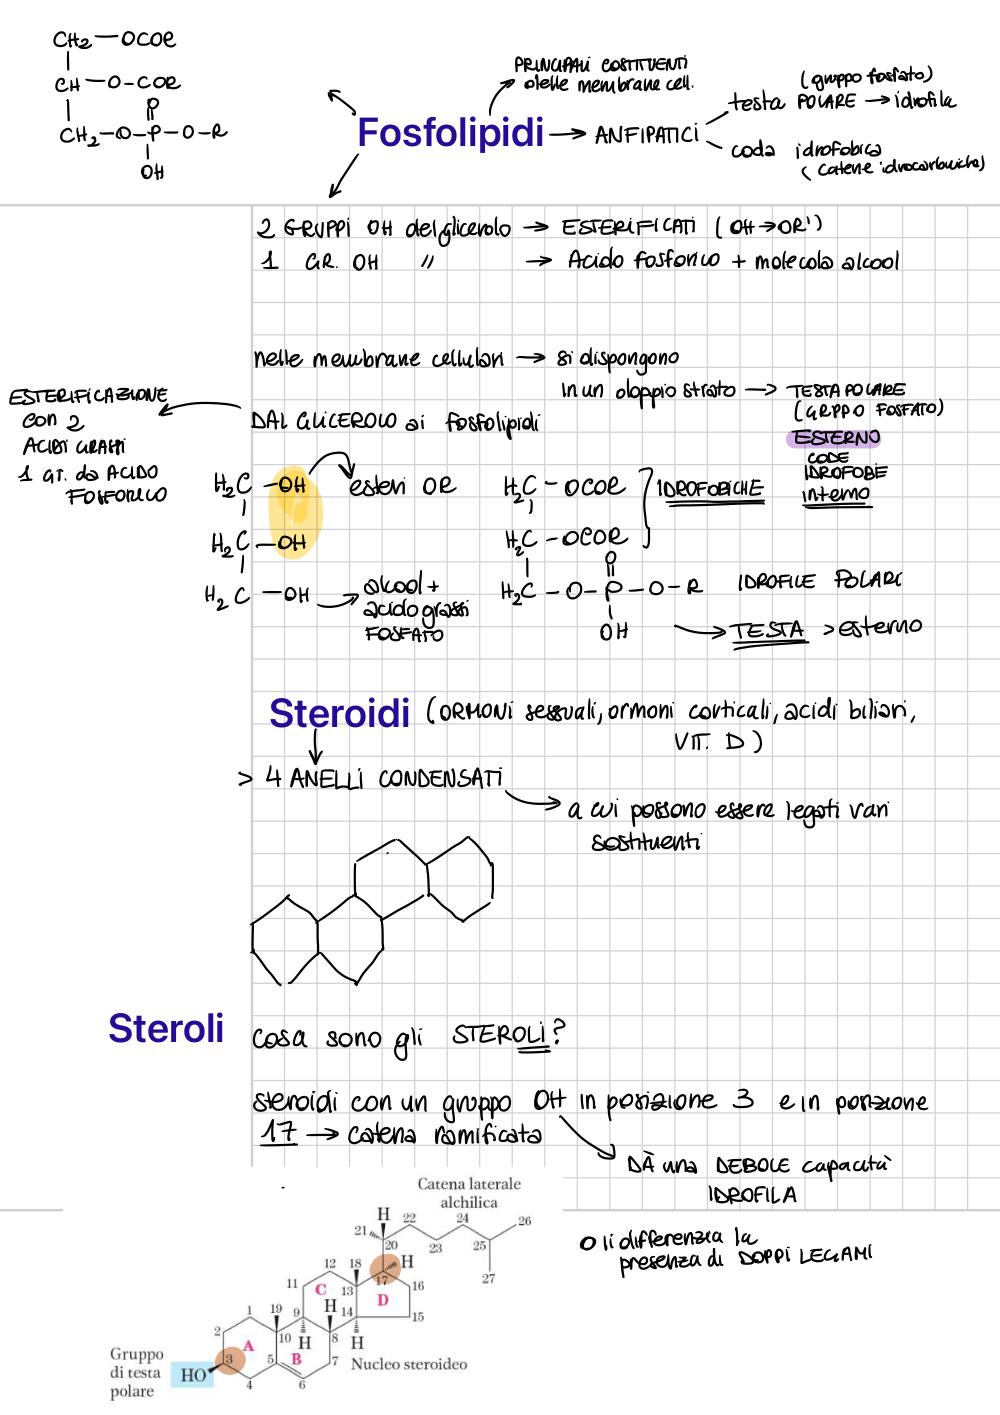 CH2 — OCOR
CH — O-COR
O
CH2-O-P-O-R
OH
PRINCIPALI COSTITUENTI
delle membrane cell.
Fosfolipidi → ANFIPATICI
(gruppo fosfato)
testa POLARE → idrofila
coda idrofobica
(catene idrocarburiche)
2 GRUPPI OH del glicerolo → ESTERIFICATI (OH→OR')
1 GR. OH " → Acido fosforico + molecola alcool
nelle membrane cellulari → si dispongono
in un doppio strato → TESTA POLARE
(GRPPO FOSFATO)
ESTERNO
CODE
IDROFOBE
interno
ESTERIFICAZIONE
con 2
ACIDI GRASSI
1 GT. da ACIDO
FOSFORICO
DAL GLICEROLO ai fosfolipidi
H2C — OH
H2C — OH
H2C — OH
esteri OR
alcool +
acido grassi
FOSFATO
H2C - OCOR
H2C - OCOR
O
H2C - O - P - O - R
OH
IDROFOBICHE
IDROFILE POLARI
TESTA > esterno
Steroidi (ORMONi sessuali, ormoni corticali, acidi biliari,
VIT. D)
> 4 ANELLI CONDENSATI
a cui possono essere legati vari
sostituenti
Steroli
cosa sono gli STEROLI?
steroidi con un gruppo OH in posizione 3 e in posizione
17 → catena ramificata
DÀ una DEBOLE capacità
IDROFILA
Catena laterale
alchilica
H 22 24 26
21 20 23 25 27
H
12 18 17 16
11 C 13 D
H 14 15
1 19 9
2 10 H 8 H
A B
3 5 7
HO 4 6
Gruppo
di testa
polare
Nucleo steroideo
o li differenzia la
presenza di DOPPI LEGAMI